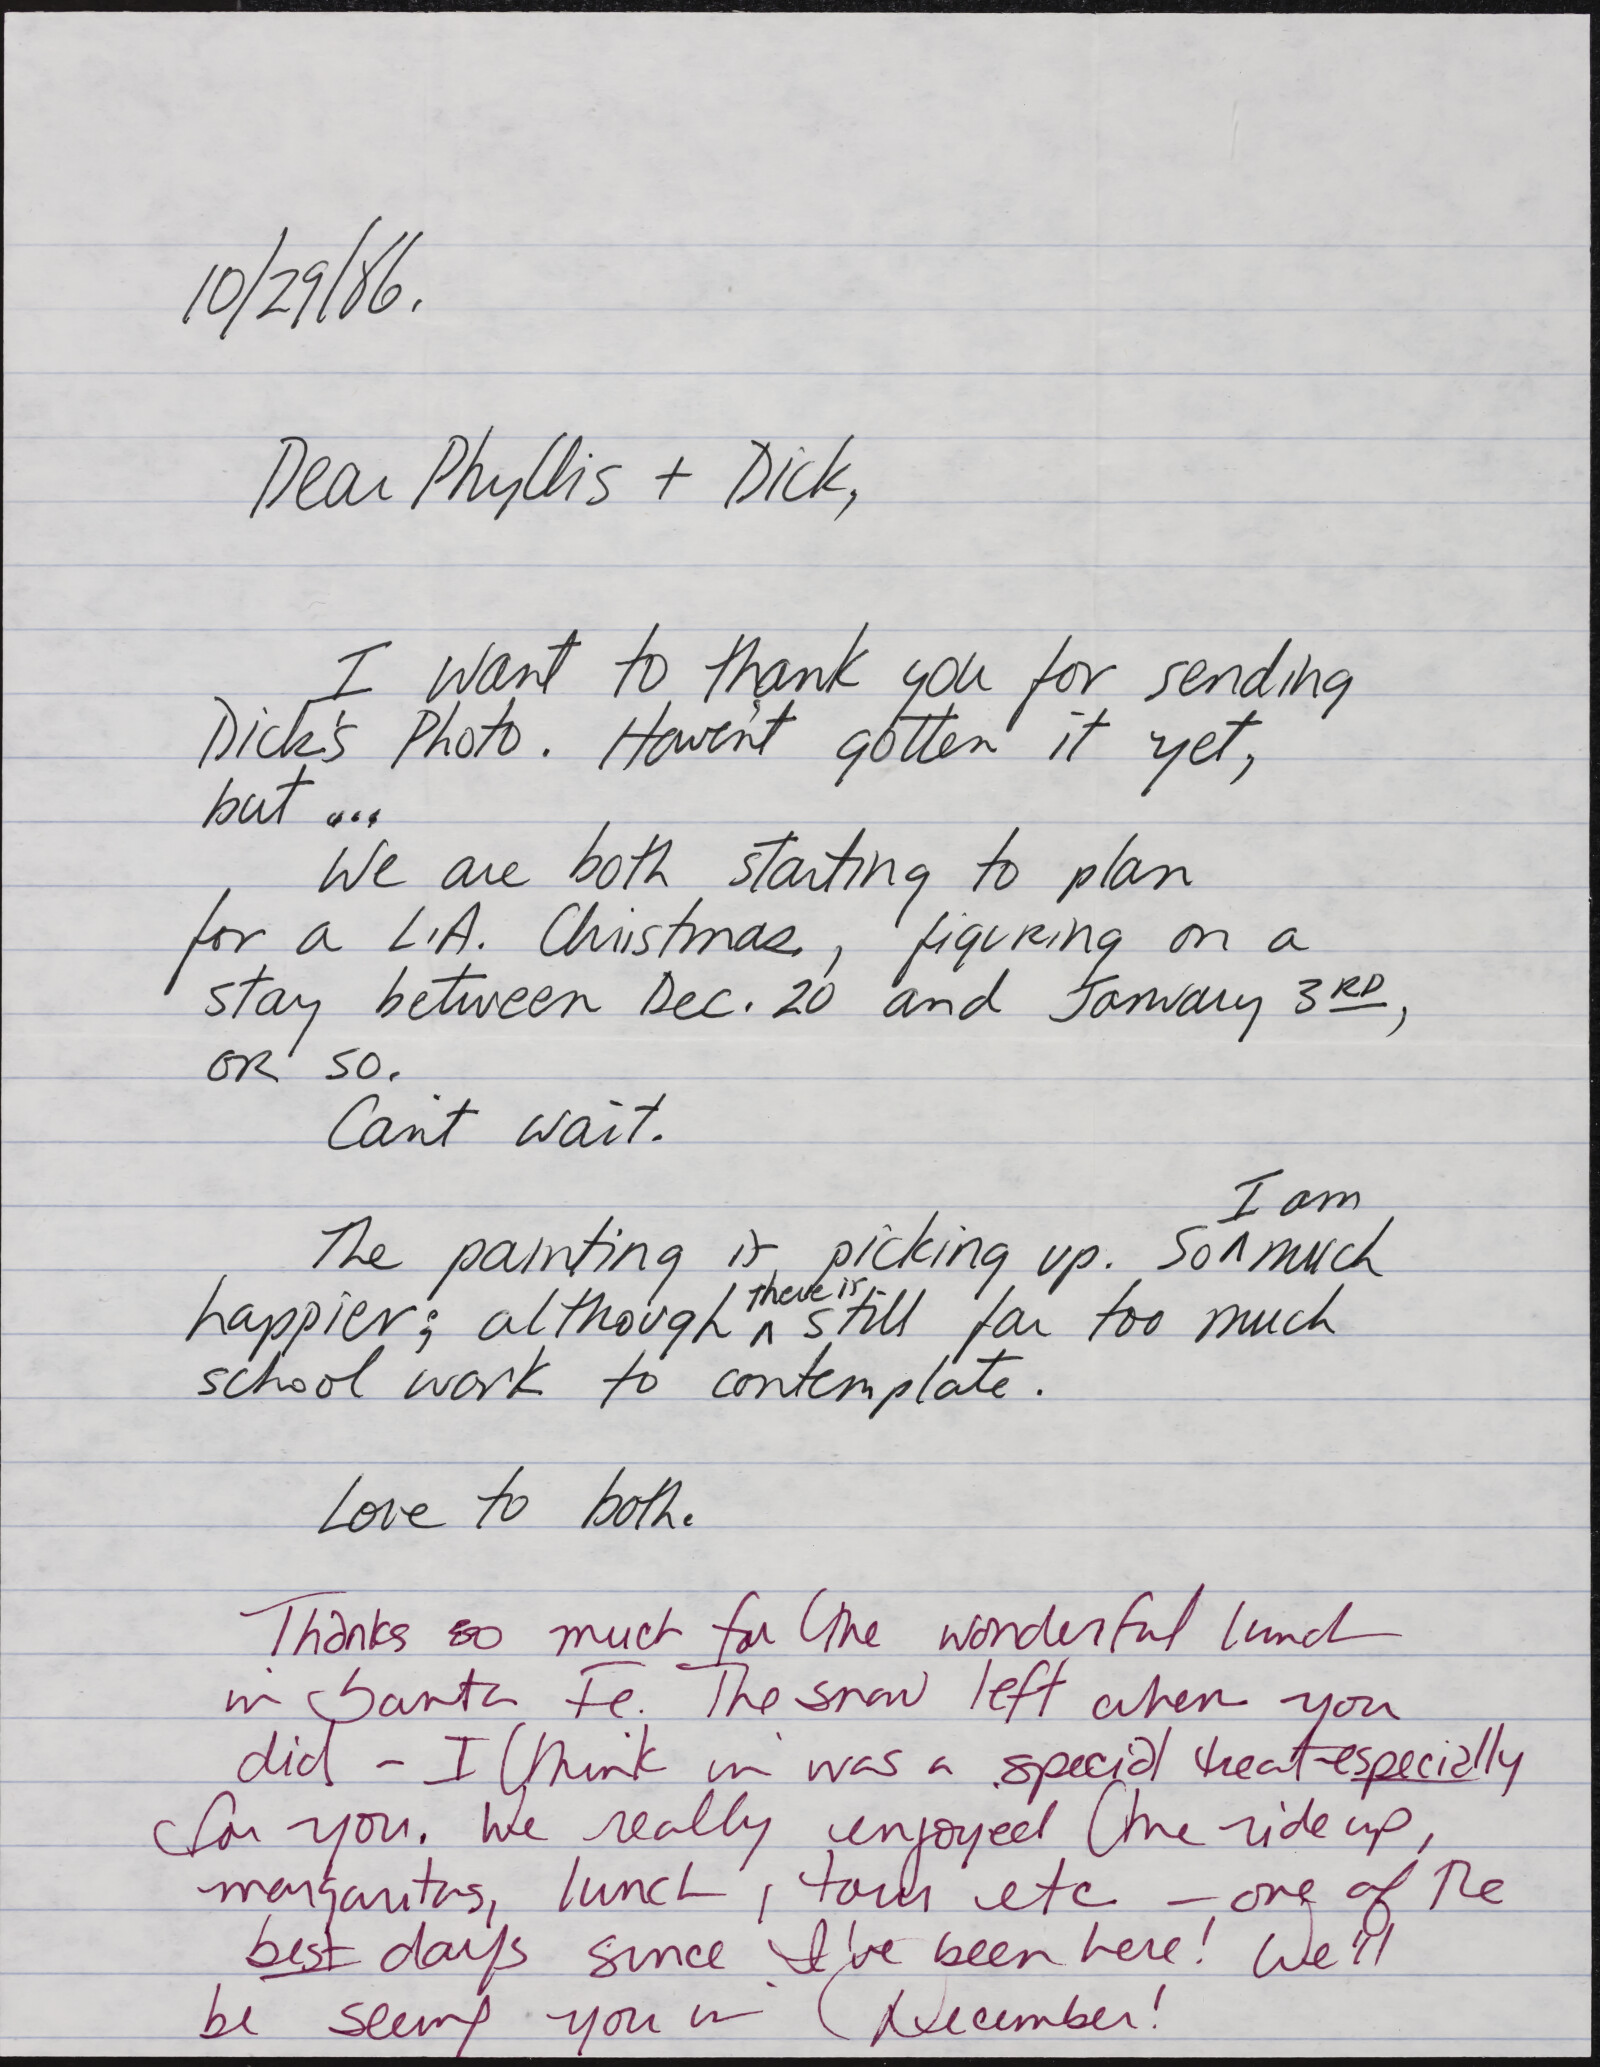 10/29/86.
Dear Phyllis + Dick,
I want to thank you for sending
Dick's Photo. Haven't gotten it yet,
but ...
We are both starting to plan
for a L.A. Christmas, figuring on a
stay between Dec. 20 and January 3RD,
or so.
Can't wait.
The painting is picking up. So ^ I am much
happier; although ^ there is still far too much
school work to contemplate.
Love to both.
Thanks so much for the wonderful lunch
in Santa Fe. The snow left when you
did - I think it was a special treat-especially
for you. We really enjoyed the ride up,
margaritas, lunch, tour etc - one of the
best days since I've been here! We'll
be seeing you in December!